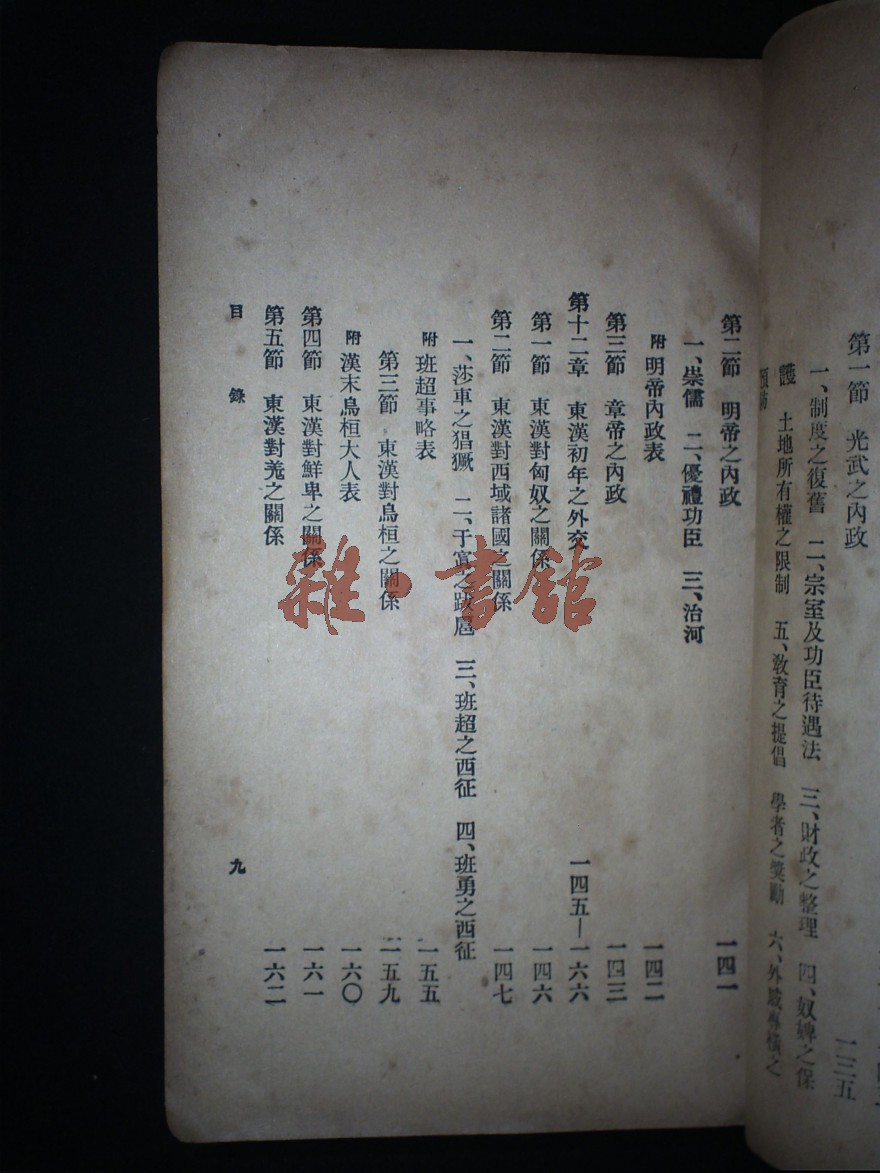 第一節　光武之內政　一三五
一、制度之復舊　二、宗室及功臣待遇法　三、財政之整理　四、奴婢之保
護　土地所有權之限制　五、敎育之提倡　學者之獎勵　六、外戚
第二節　明帝之內政　一四一
一、崇儒　二、優禮功臣　三、治河
附 明帝內政表　一四二
第三節　章帝之內政　一四三
第十二章　東漢初年之外交　一四五—一六六
第一節　東漢對匈奴之關係　一四六
第二節　東漢對西域諸國之關係　一四七
一、莎車之猖獗　二、于窴之跋扈　三、班超之西征　四、班勇之西征
附 班超事略表　一五五
第三節　東漢對烏桓之關係　一五九
附 漢末烏桓大人表　一六〇
第四節　東漢對鮮卑之關係　一六一
第五節　東漢對羌之關係　一六二
目錄　九
雜·書館